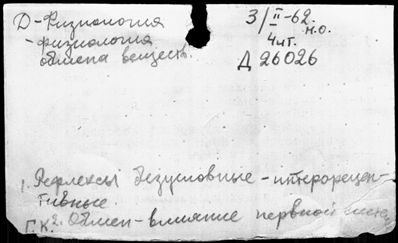 Д-Физиология
-физиология
обмена веществ.
3/II-62.
н.о.
4 шт.
Д 26026
1. Рефлексы безусловные - интерорецеп-
тивные
2. Обмен - влияние нервной систе
Г.К.